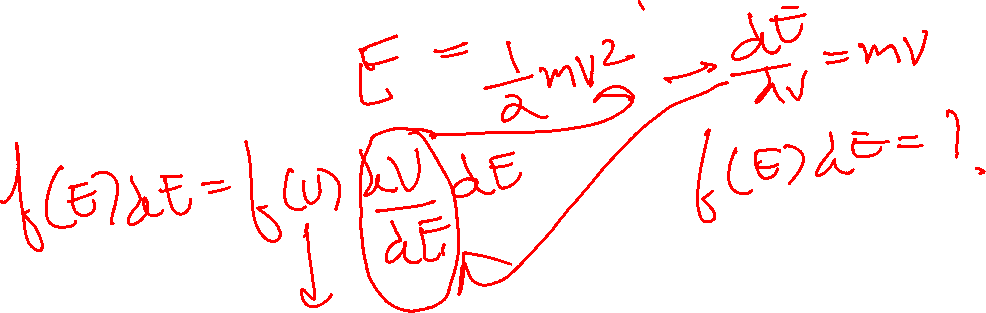 E = 1/2 mv² → dE/dv = mv
f(E)dE = f(v) dv/dE dE
f(E)dE = ?